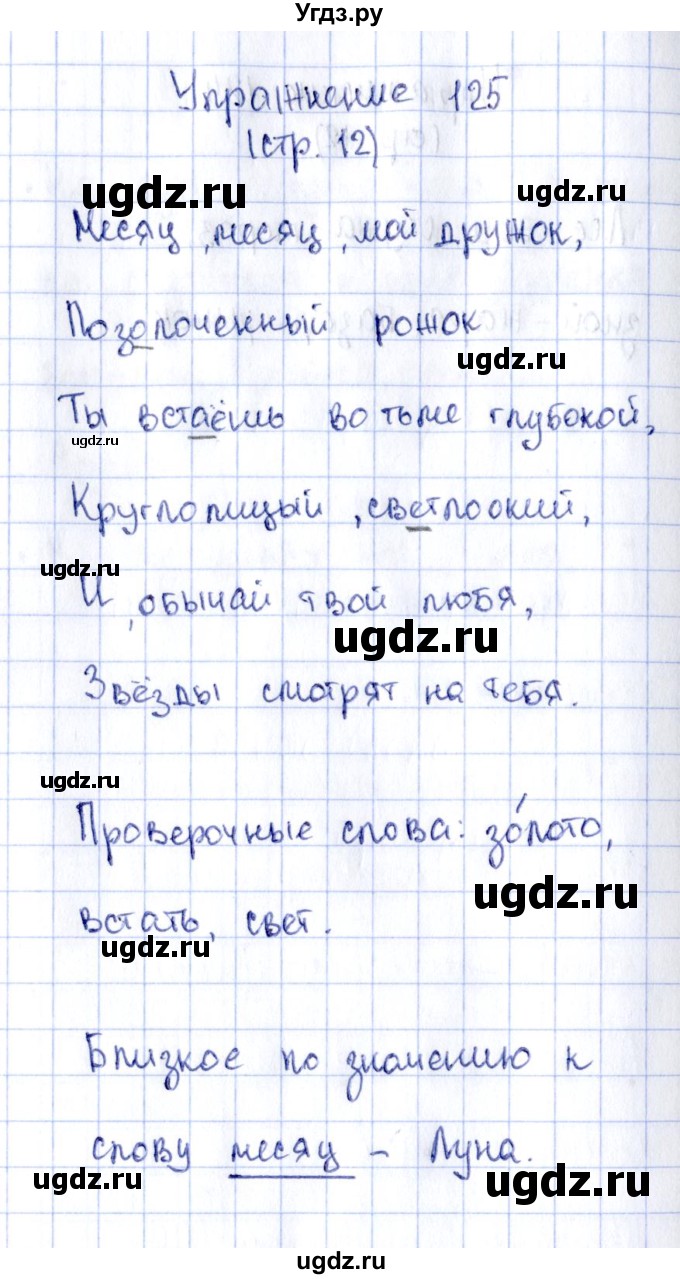 Угдз.ру
Упражнение 125
(стр. 12)
ugdz.ru ugdz.ru
Месяц, месяц, мой дружок,
Позолоченный рожок
ugdz.ru
Ты встаёшь во тьме глубокой,
ugdz.ru
Круглолицый, светлоокий,
ugdz.ru
И, обычай твой любя,
ugdz.ru
Звёзды смотрят на тебя.
ugdz.ru
Проверочные слова: зо́лото,
ugdz.ru
встать, свет.
ugdz.ru
Близкое по значению к
слову месяц - Луна.
ugdz.ru ugdz.ru
ugdz.ru